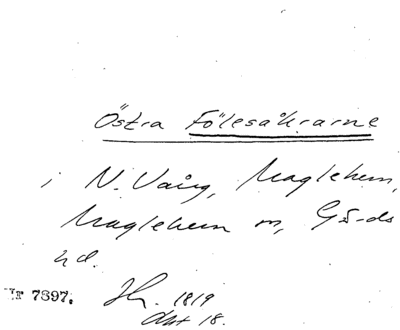 Östra Fölesåkrarne
i N. Vång, Maglehem,
Maglehem sn, Gärds
hd.
Nr 7897. Sk. 1819
akt 18.